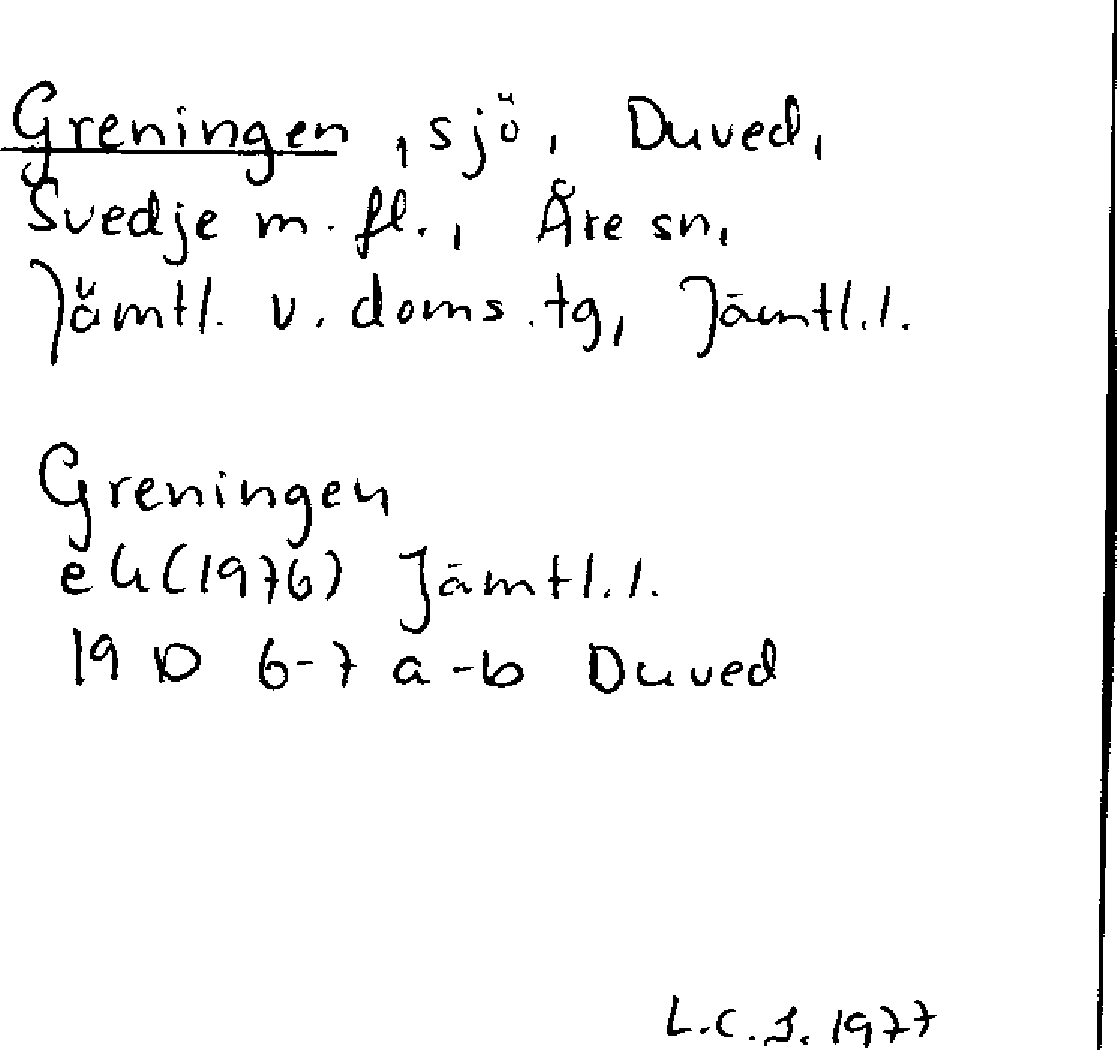 Greningen, sjö, Duved,
Svedje m. fl., Åre sn,
Jämtl. v. doms. tg, Jämtl.l.
Greningen
ek (1976) Jämtl.l.
19 D 6-7 a-b Duved
L.C.J. 1977